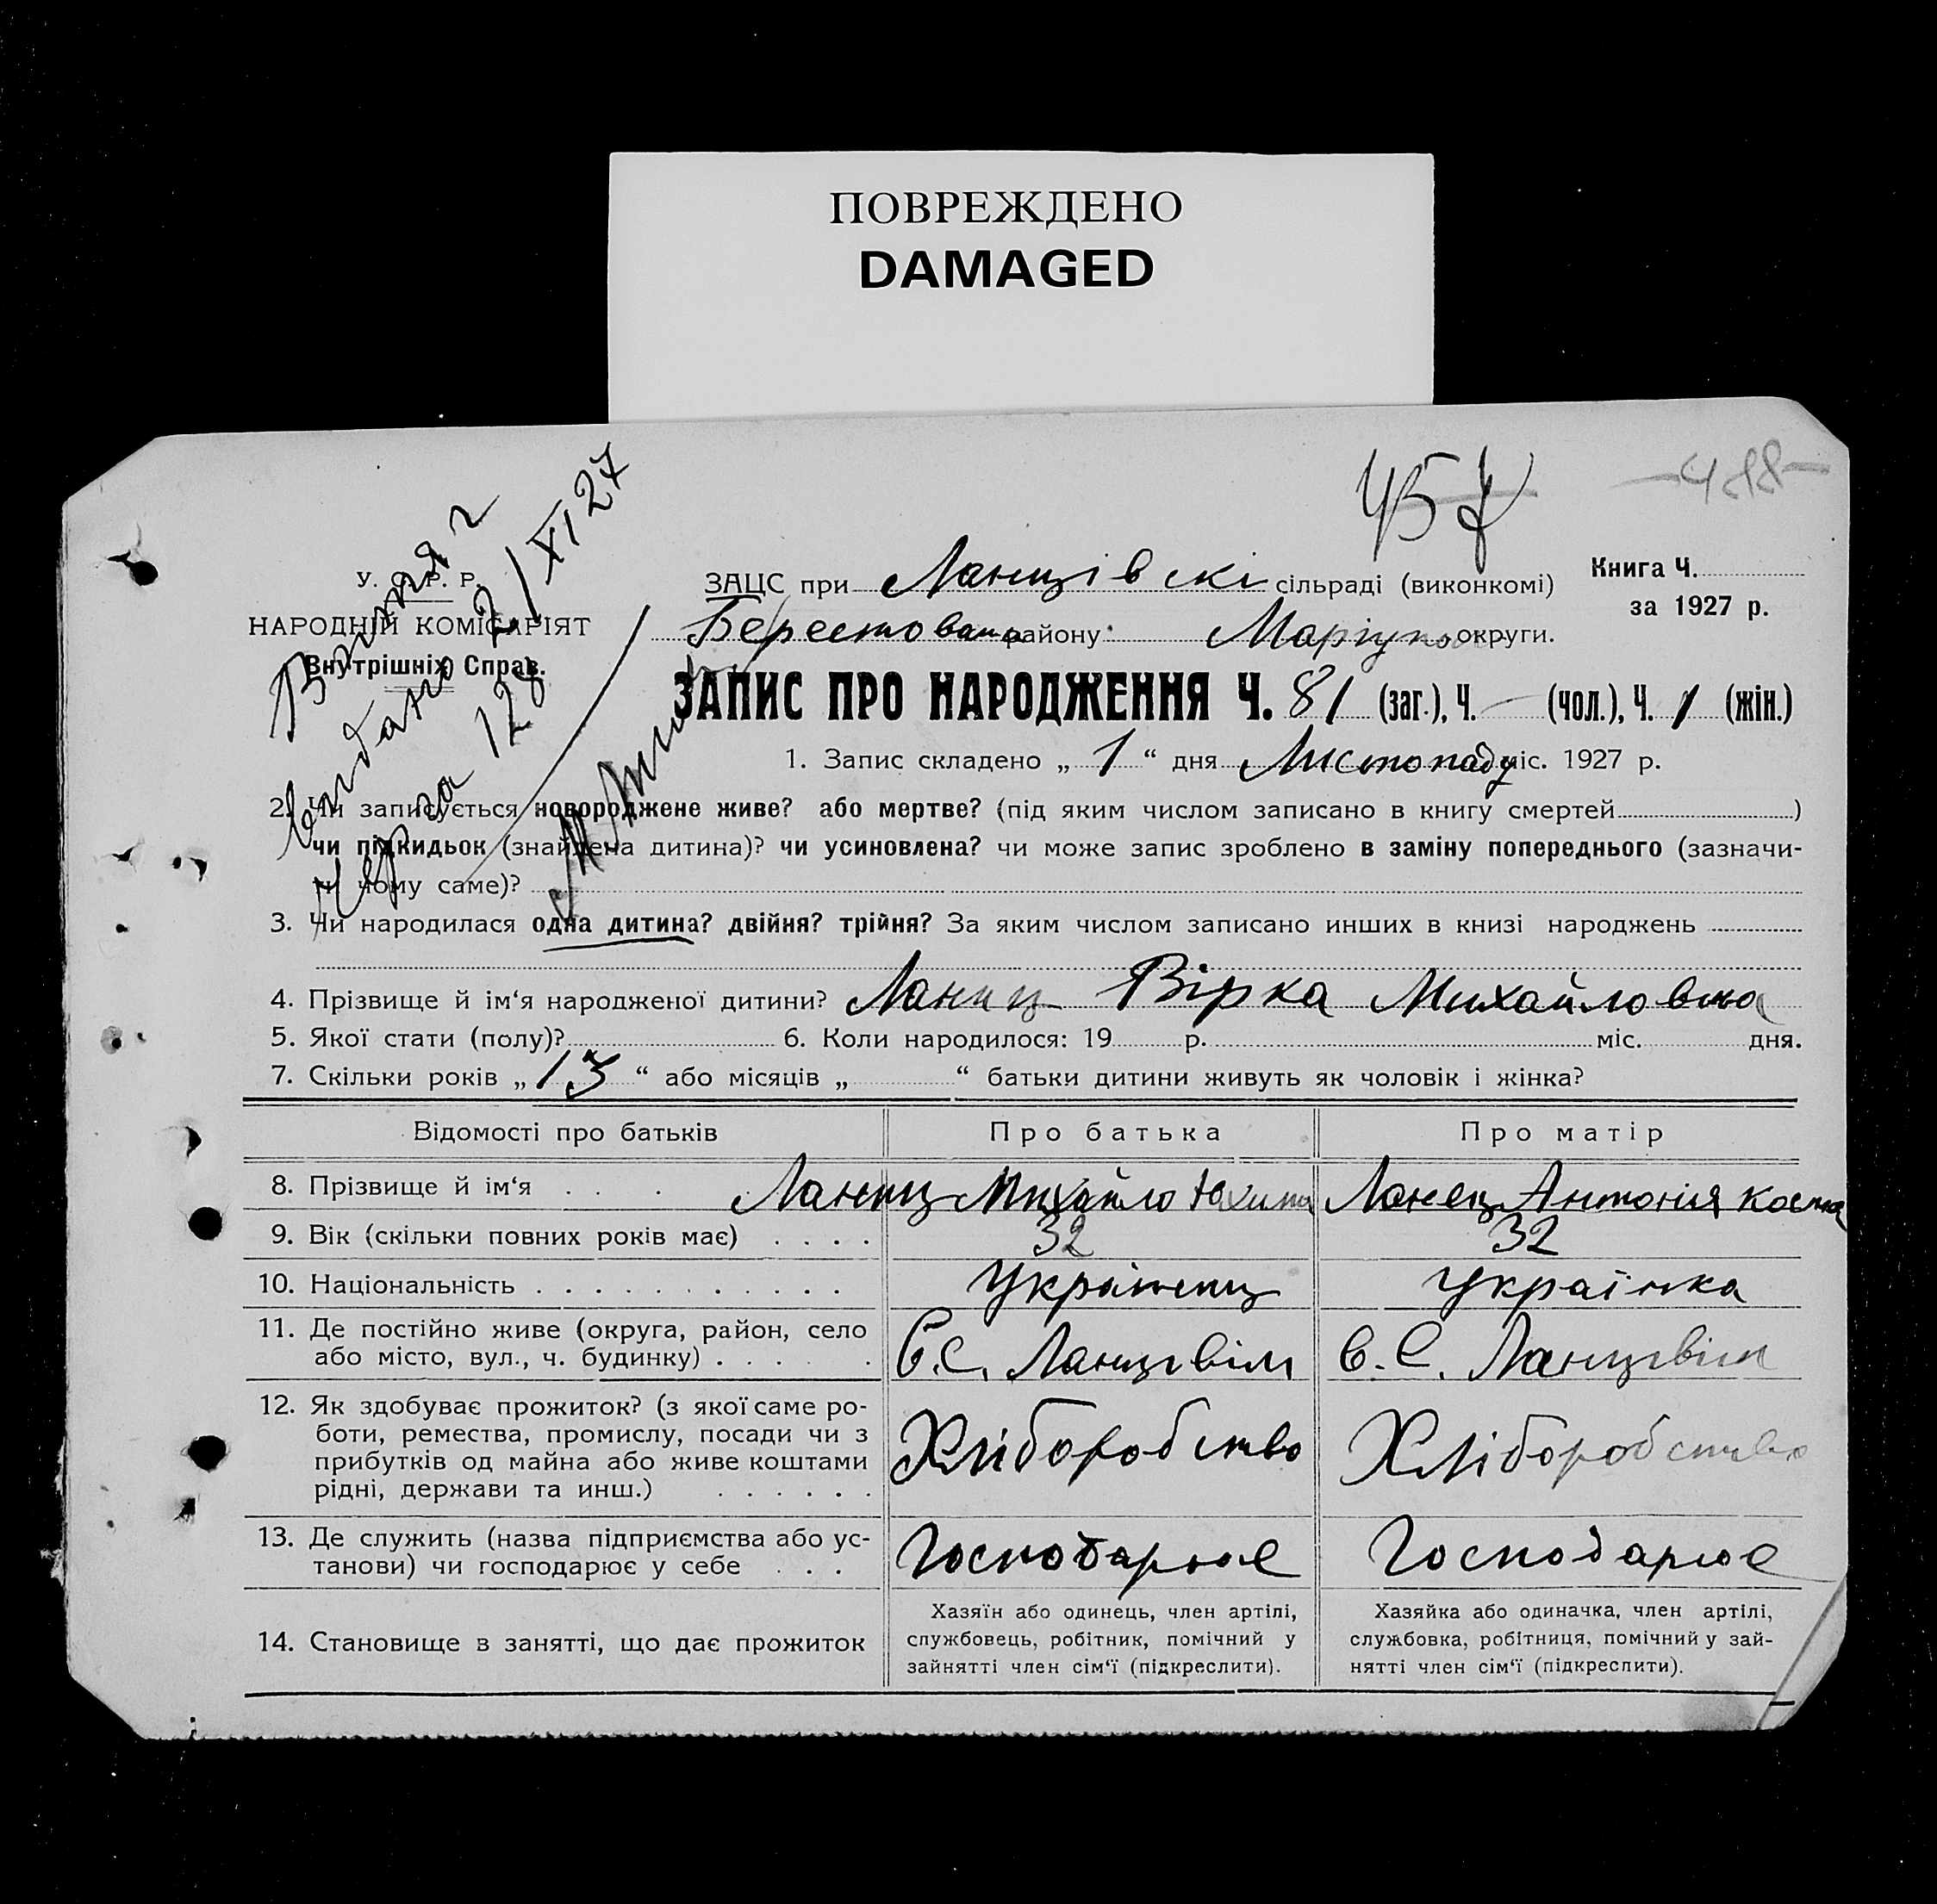 ПОВРЕЖДЕНО
DAMAGED
457
-488-
У. С. Р. Р.
НАРОДНІЙ КОМІСАРІЯТ
Внутрішніх Справ.
Витяг
видано 2/XI 27
Через 128
ЗАЦС при Ланцівскі сільраді (виконкомі)
Книга Ч.
за 1927 р.
району Маріупо округи.
ЗАПИС ПРО НАРОДЖЕННЯ Ч. 81 (заг.), Ч. — (чол.), Ч. 1 (жін.)
1. Запис складено „ 1 “ дня Листопаду міс. 1927 р.
2. Чи записується новороджене живе? або мертве? (під яким числом записано в книгу смертей )
чи підкидьок (знайдена дитина)? чи усиновлена? чи може запис зроблено в заміну попереднього (зазначи-
ти чому саме)?
3. Чи народилася одна дитина? двійня? трійня? За яким числом записано инших в книзі народжень
4. Прізвище й ім‘я народженої дитини? Ланец Вірка Михайловна
5. Якої стати (полу)? 6. Коли народилося: 19 р. міс. дня.
7. Скільки років „ 13 “ або місяців „ “ батьки дитини живуть як чоловік і жінка?
Відомості про батьків Про батька Про матір
8. Прізвище й ім‘я . . . Ланец Михайло Юхима Ланец Антонія Косма
9. Вік (скільки повних років має) . . . . 32 32
10. Національність . . . . . . . . . . . Українец Українка
11. Де постійно живе (округа, район, село
або місто, вул., ч. будинку) . . . . . . в.с. Ланцевім в.с. Ланцевім
12. Як здобуває прожиток? (з якої саме ро-
боти, ремества, промислу, посади чи з
прибутків од майна або живе коштами
рідні, держави та инш.) . . . . . . Хліборобство Хліборобство
13. Де служить (назва підприємства або ус-
танови) чи господарює у себе . . . Господарює Господарює
14. Становище в занятті, що дає прожиток
Хазяїн або одинець, член артілі,
службовець, робітник, помічний у
зайнятті член сім‘ї (підкреслити).
Хазяйка або одиначка, член артілі,
службовка, робітниця, помічний у зай-
нятті член сім‘ї (підкреслити).